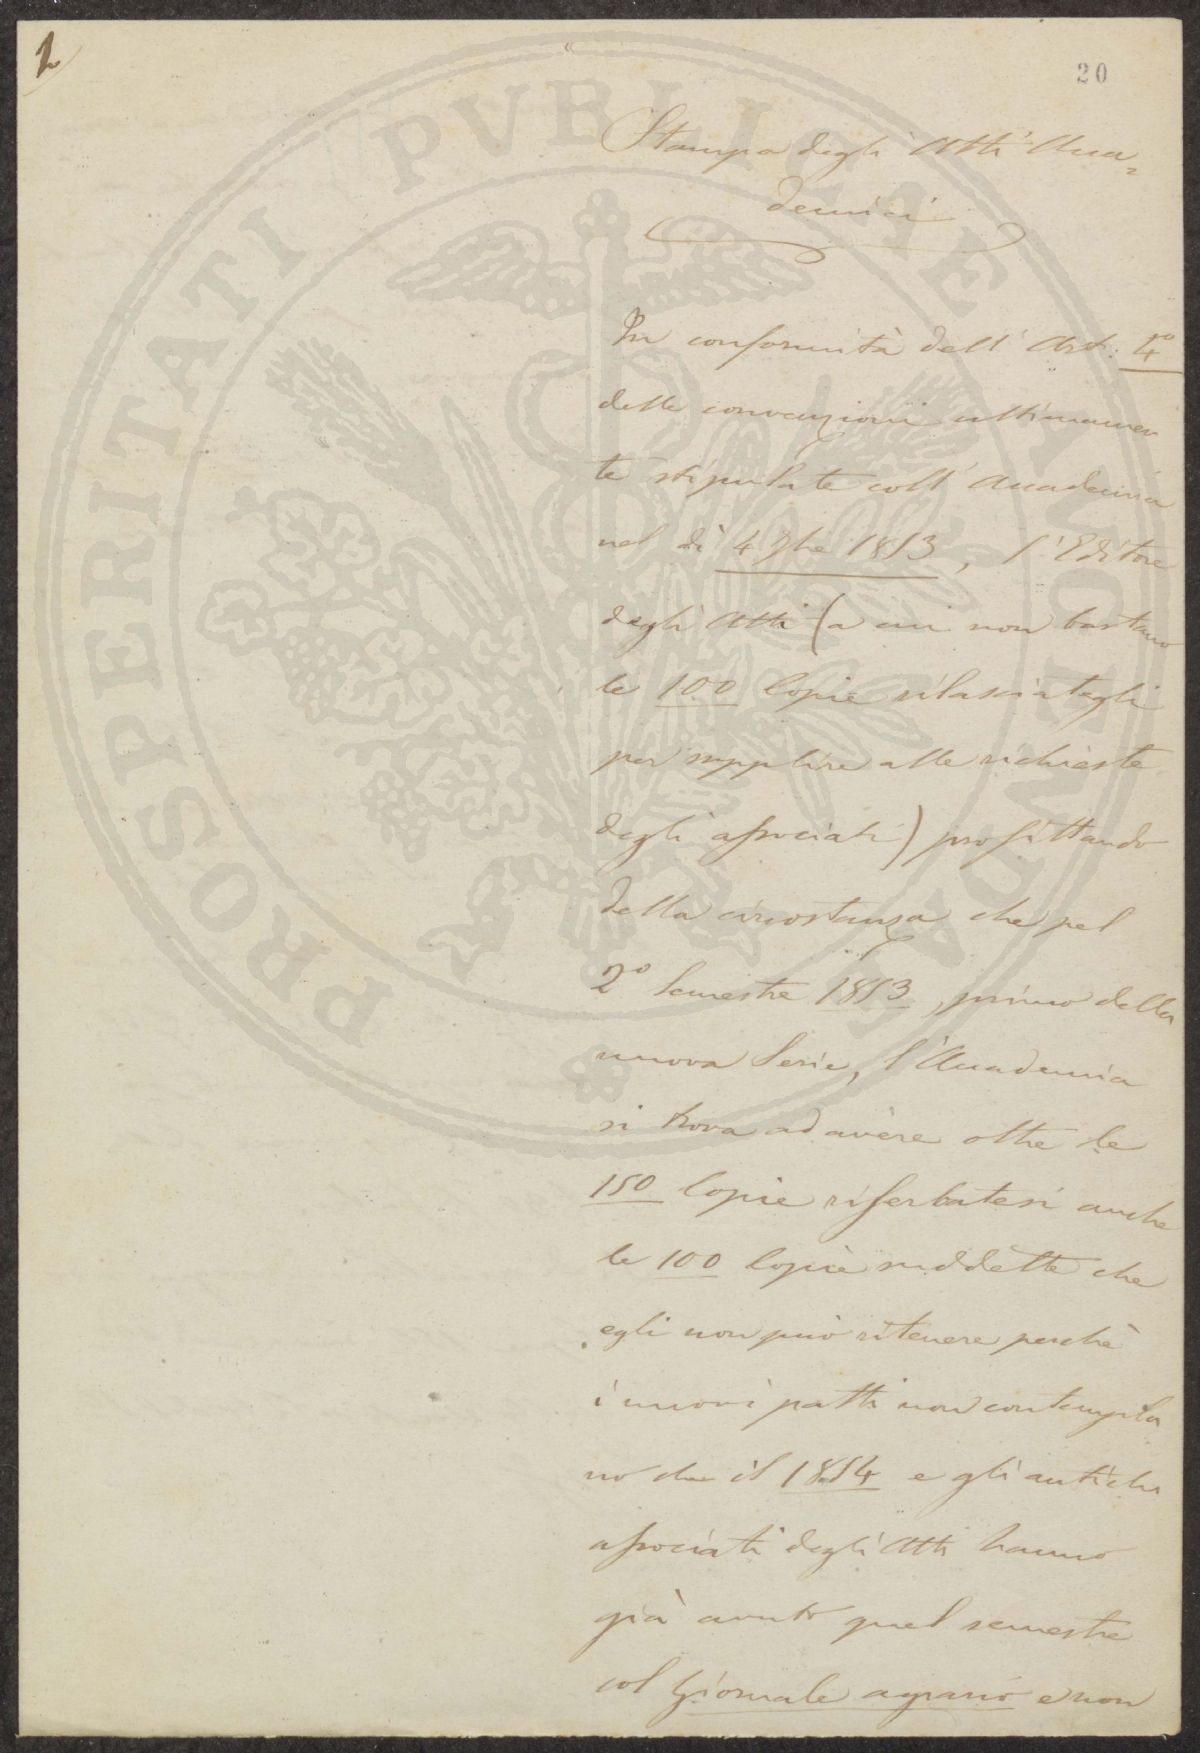 1
20
Stampa degli Atti Acca=
demici
In conformità dell' Art. 4º
delle convenzioni ultimamen
te stipulate coll' Accademia
nel dì 4 9bre 1853, l'Editore
degli Atti (a cui non bastano
le 100 Copie rilasciategli
per supplire alle richieste
degli associati) profittando
della circostanza che pel
2º Semestre 1853, primo della
nuova Serie, l'Accademia
si trova ad avere oltre le
150 Copie riserbatesi anche
le 100 Copie suddette che
egli non può ritenere perchè
i nuovi patti non contempla
no che il 1854 e gli antichi
associati degli Atti hanno
già avuto quel semestre
col Giornale agrario e non
PROSPERITATI PVBLICAE AVGENDAE